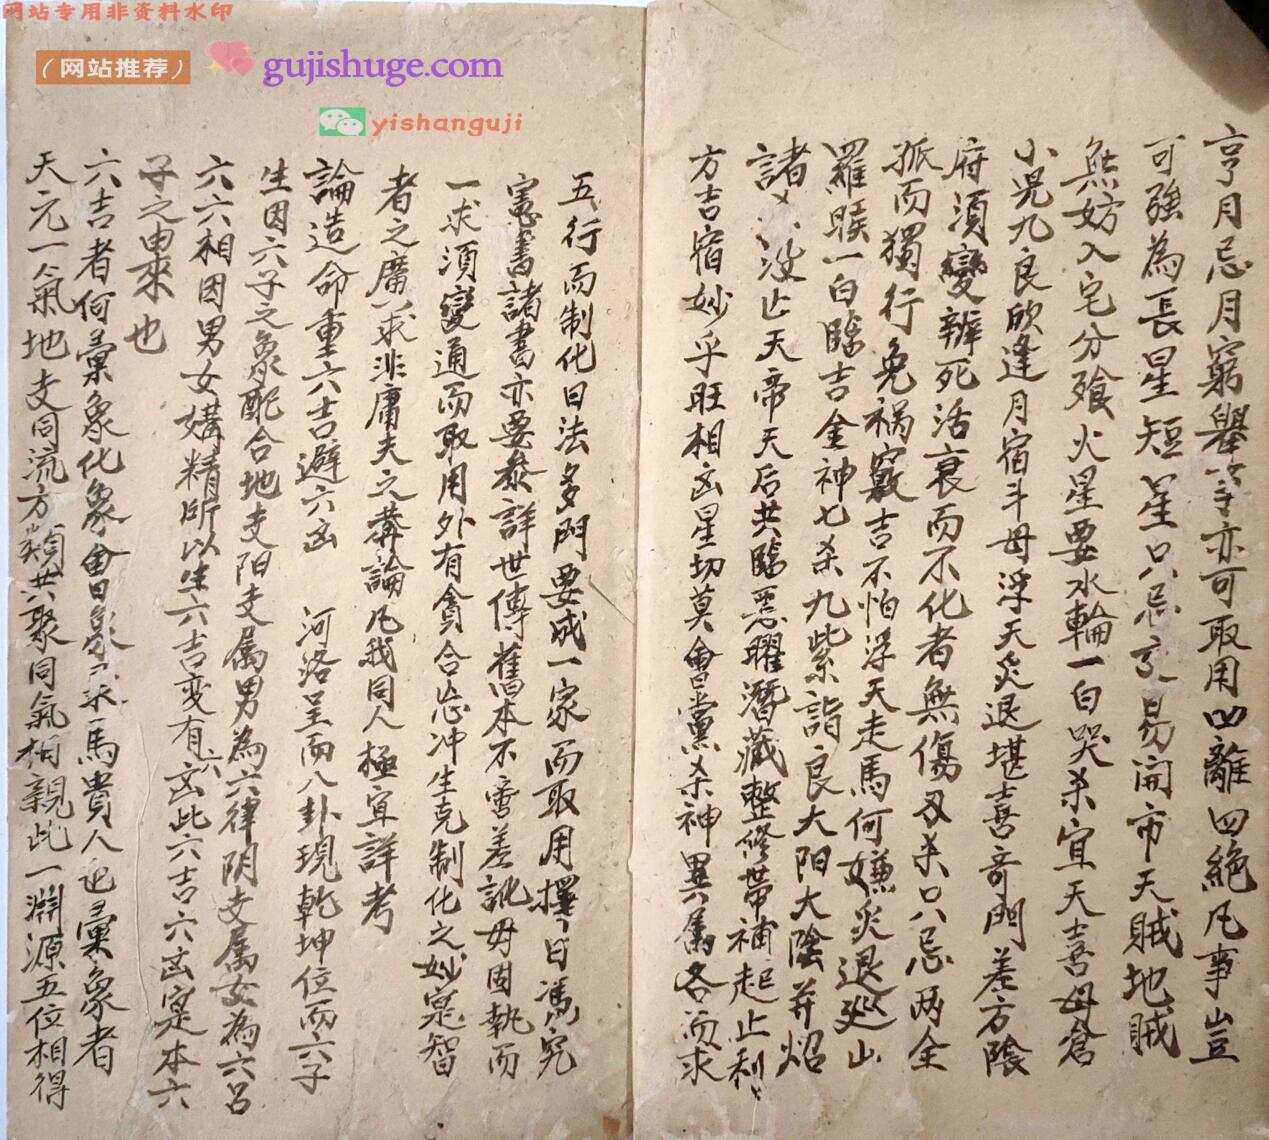 网站专用非资料水印
（网站推荐）
gujishuge.com
yishanguji
亨月忌月窮舉等亦可取用四離四絕凡事豈
可強為長星短星只忌交易開市天賊地賊
無妨入宅分飱火星要水輪一白哭杀宜天喜母倉
小児九良欣逢月宿斗母浮天炎退堪喜奇門差方陰
府須變辦死活衰而不化者無傷刃杀只忌两全
孤而獨行免祸竅吉不怕浮天走馬何嫌炎退廵山
羅睺一白臨吉金神七杀九紫詣良太阳太陰并炤
諸凶没亡天帝天后共臨惡曜潛藏整修带補起止利
方吉宿妙乎旺相凶星切莫會黨杀神異属各而求
五行而制化日法多門要成一家而取用擇日馮究
憲書諸書亦要泰詳世傳舊本不啻差訛毋固執而
一求須變通而取用外有貪合忘冲生克制化之妙寔智
者之廣求非庸夫之搆論凡我同人極宜詳考
論造命重六吉避六凶　河洛呈而八卦現乾坤位而六子
生因六子之象配合地支阳支属男為六律阴支属女為六呂
六六相因男女媾精所以生六吉变有六凶此六吉六凶寔本六
子之由來也
六吉者何彙象化象會象禄馬貴人也彙象者
天元一氣地支同流方類共聚同氣相親此一淵源五位相得